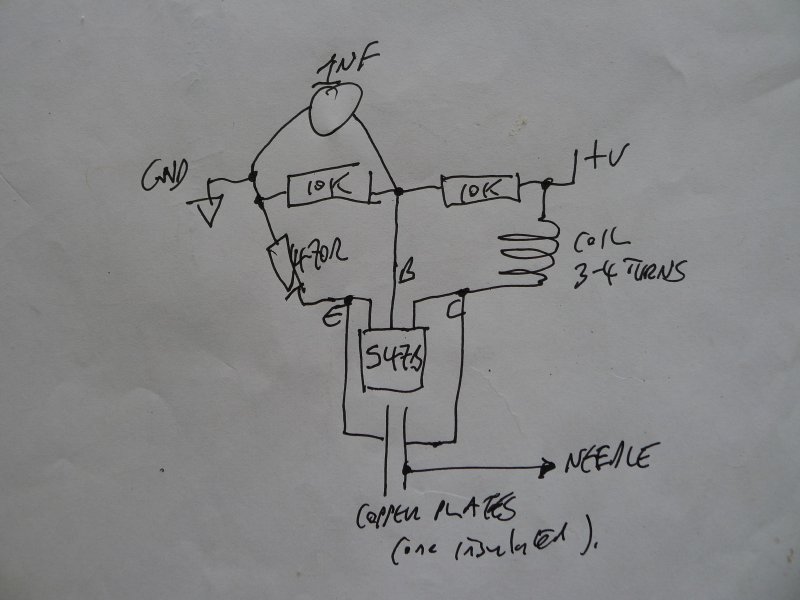 1NF
GND
10K
10K
+V
470R
COIL
3-4 TURNS
B
E
C
547B
NEEDLE
COPPER PLATES
(one insulated).